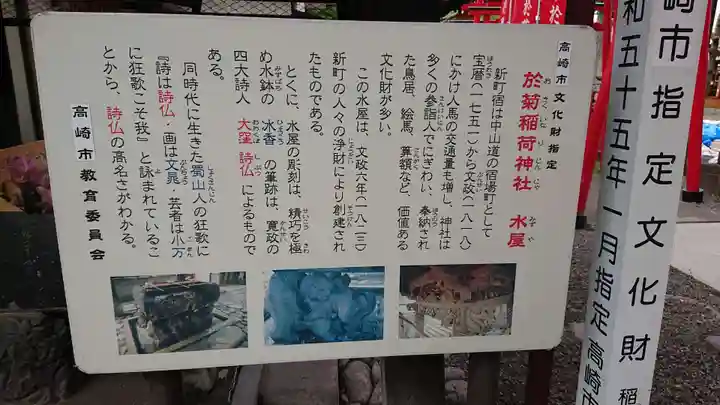 高崎市文化財指定
於菊稲荷神社 水屋
おきくいなりじんじゃ みずや
新町宿は中山道の宿場町として
宝暦(一七五一)から文政(一八一八)
にかけ人馬の交通量も増し、神社は
多くの参詣人でにぎわい、奉納され
た鳥居、絵馬、算額など、価値ある
文化財が多い。
この水屋は、文政六年(一八二三)
新町の人々の浄財により創建され
たものである。
とくに、水屋の彫刻は、精巧を極
め水鉢の「水香」の筆跡は、寛政の
四大詩人 大窪詩仏によるもので
ある。
同時代に生きた蜀山人の狂歌に
『詩は詩仏、画は文晁、芸者は小万
に狂歌こそ我』と詠まれているこ
とから、詩仏の高名さがわかる。
高崎市教育委員会
崎市指定文化財 稲
和五十五年一月指定 高崎市